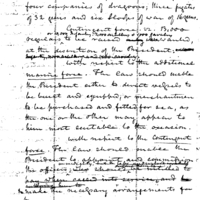 four companies of dragoons, three frigates
of 32 guns and six Sloops of war of 16 guns.
Contingent force, viz. 13,000
to be raised
at the discretion of the President
with respect to the additional
marine force. The law should enable
the President either to direct vessels to
be built and equipped, or merchantmen
to be purchased and fitted for sea, as
the one or the other may appear to
him most suitable to the occasion.
With respect to the contingent
force. The law should enable the
President to appoint and commission
the officers
called into service, and
make the necessary arrangements for